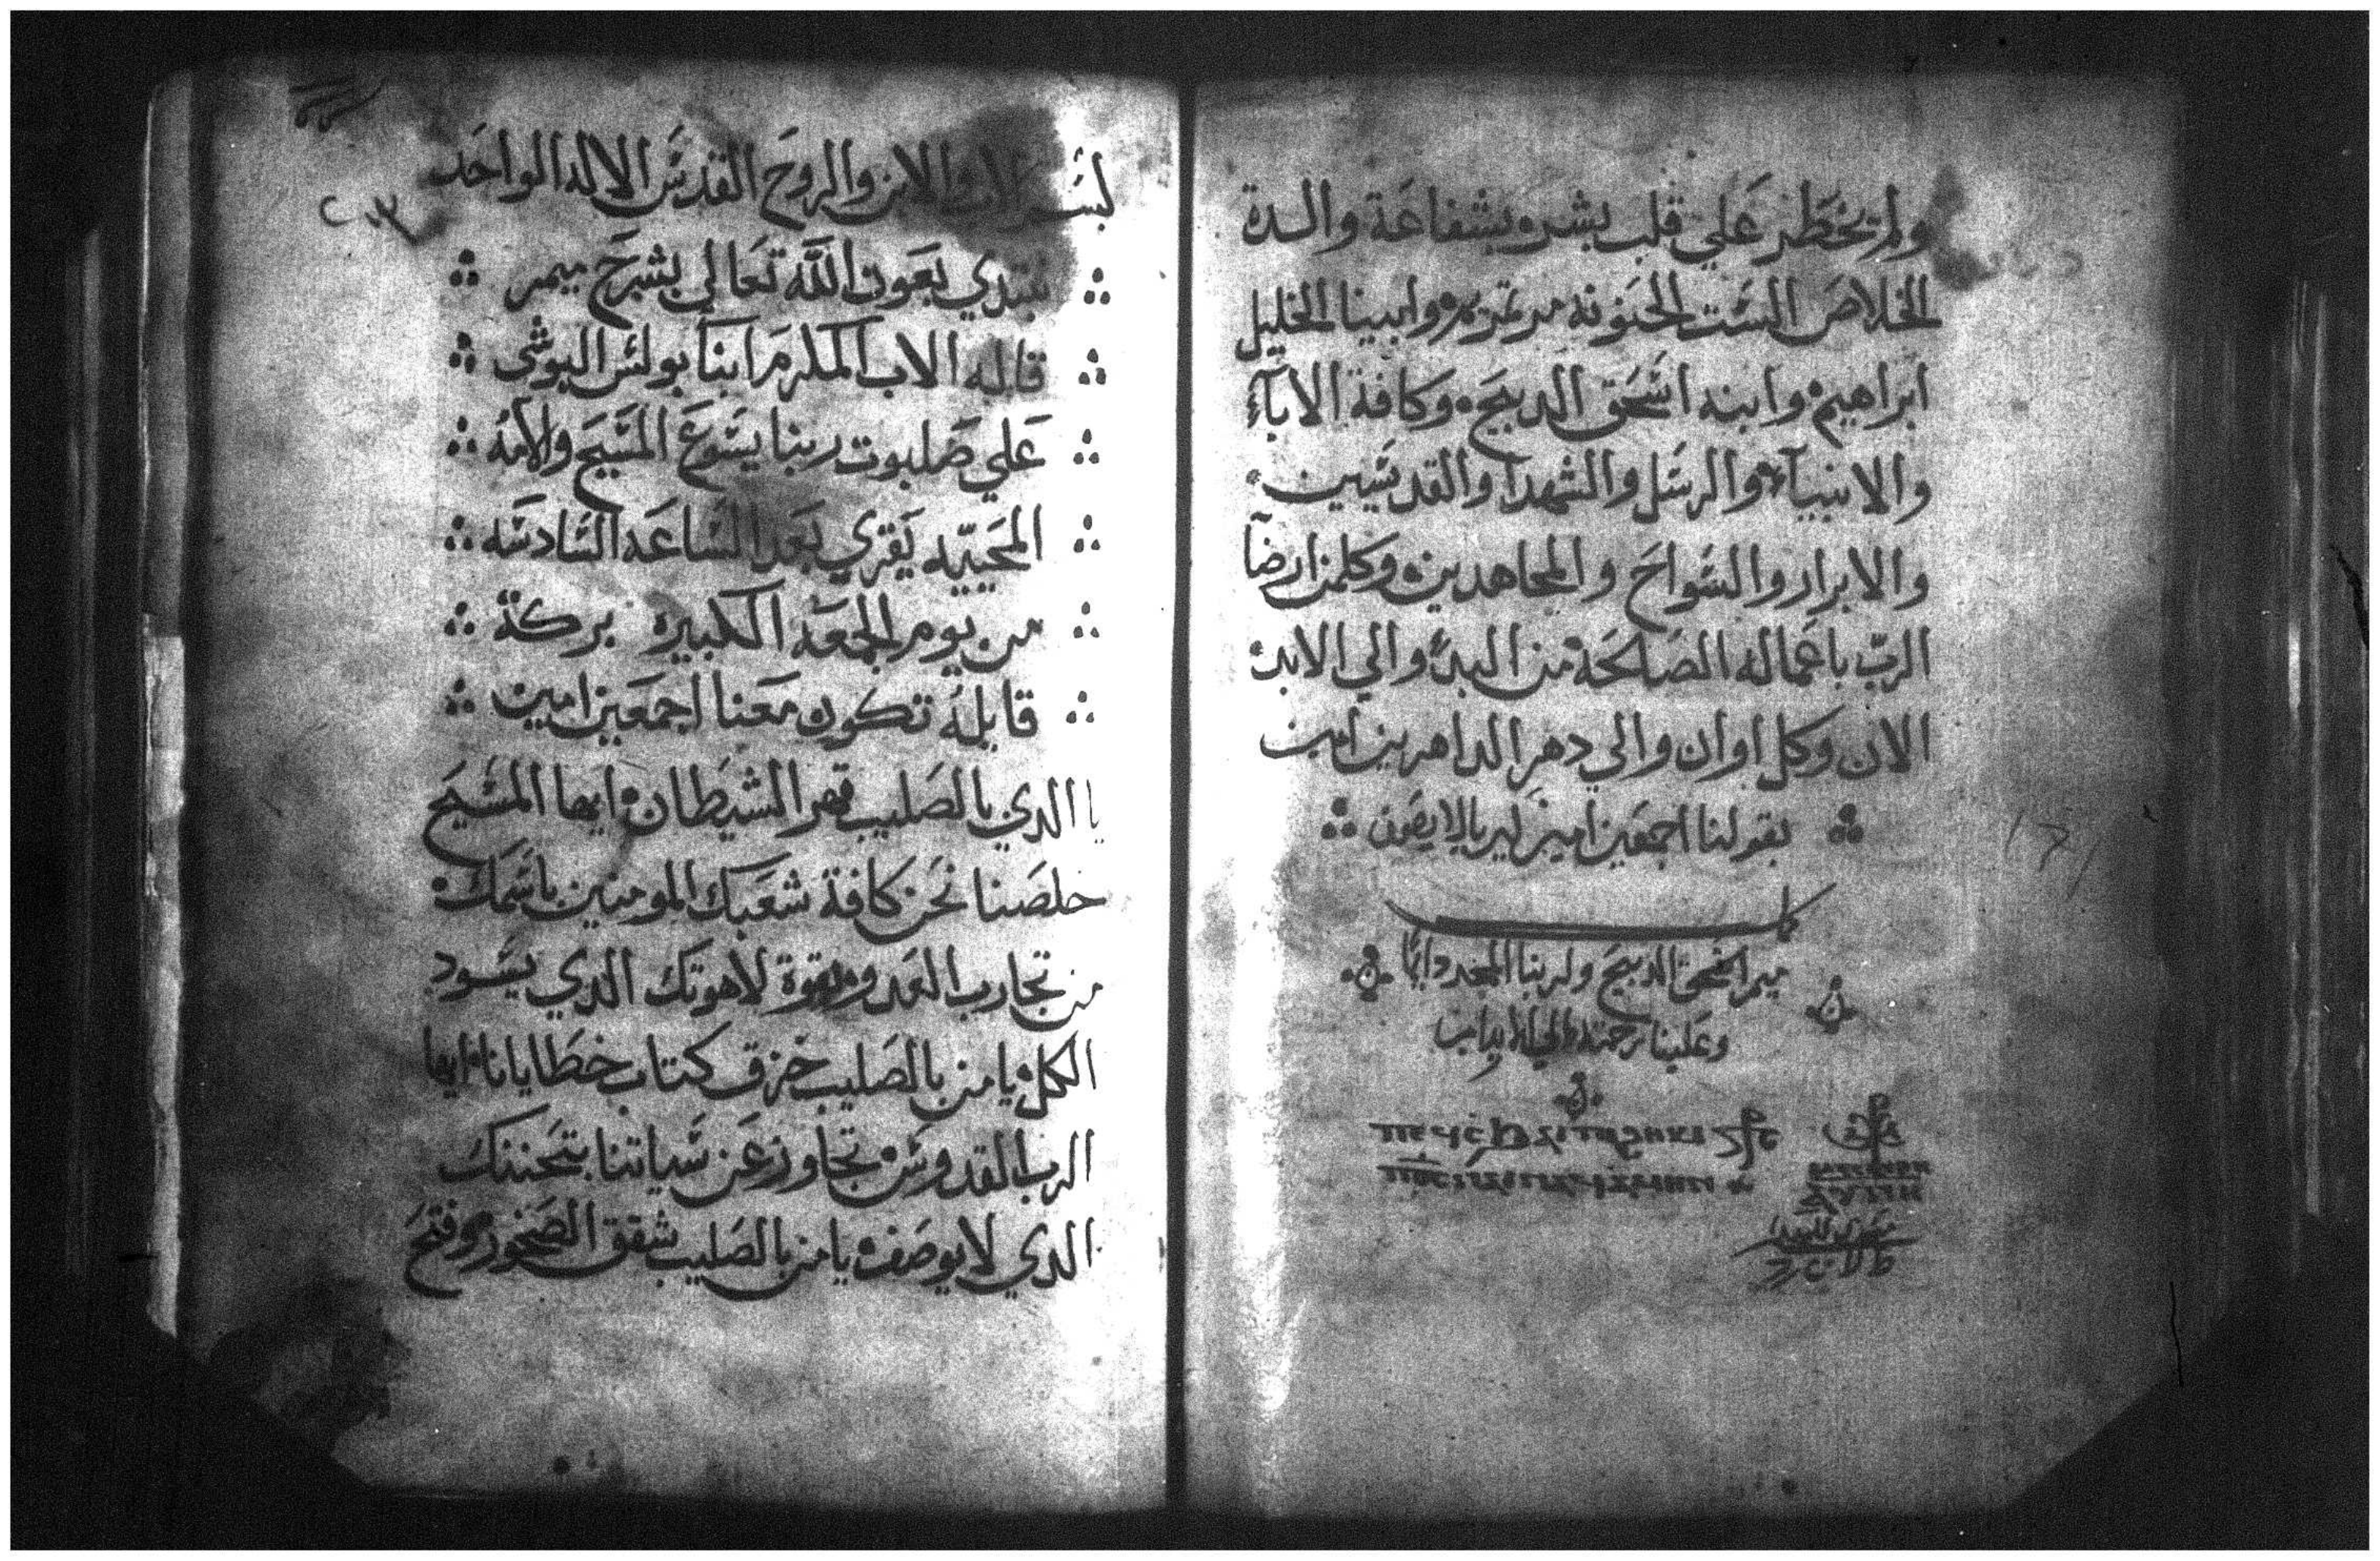 ولم يخطر علي قلب بشر، بشفاعة والدة
الخلاص الست الحنونه مرتمريم، وابينا الخليل
ابراهيم، وابنه اسحق الدبيح، وكافة الابآء
والانبيآء، والرسل والشهدا والقديسين،
والابرار والسواح والمجاهدين، وكلمن ارضآ
الرب باعماله الصالحة، من البدء والي الابد،
الان وكل اوان والي دهر الداهرين امين
بقولنا اجمعين امين كيرياليصون
كمل
ميمر اسحق الدبيح ولربنا المجد دايمًا
وعلينا رحمته الي الابد امين
بسم الاب والابن والروح القدس الاله الواحد
نبتدي بعون الله تعالي بشرح ميمر
قاله الاب المكرم انبا بولس البوشي
علي صلبوت ربنا يسوع المسيح والامه
المحييه يقري بعد الساعه السادسه
من يوم الجمعه الكبيرة بركة
قايله تكون معنا اجمعين امين
يا الدي بالصليب قهر الشيطان، ايها المسيح
خلصنا نحن كافة شعبك المومنين باسمك،
من تجارب العدو، بقوة لاهوتك الدي يسود
الكل، يا من بالصليب خزق كتاب خطايانا، ايها
الرب القدوس، تجاوز عن سياتنا بتحننك
الدي لا يوصف، يا من بالصليب شقق الصخور، وفتح